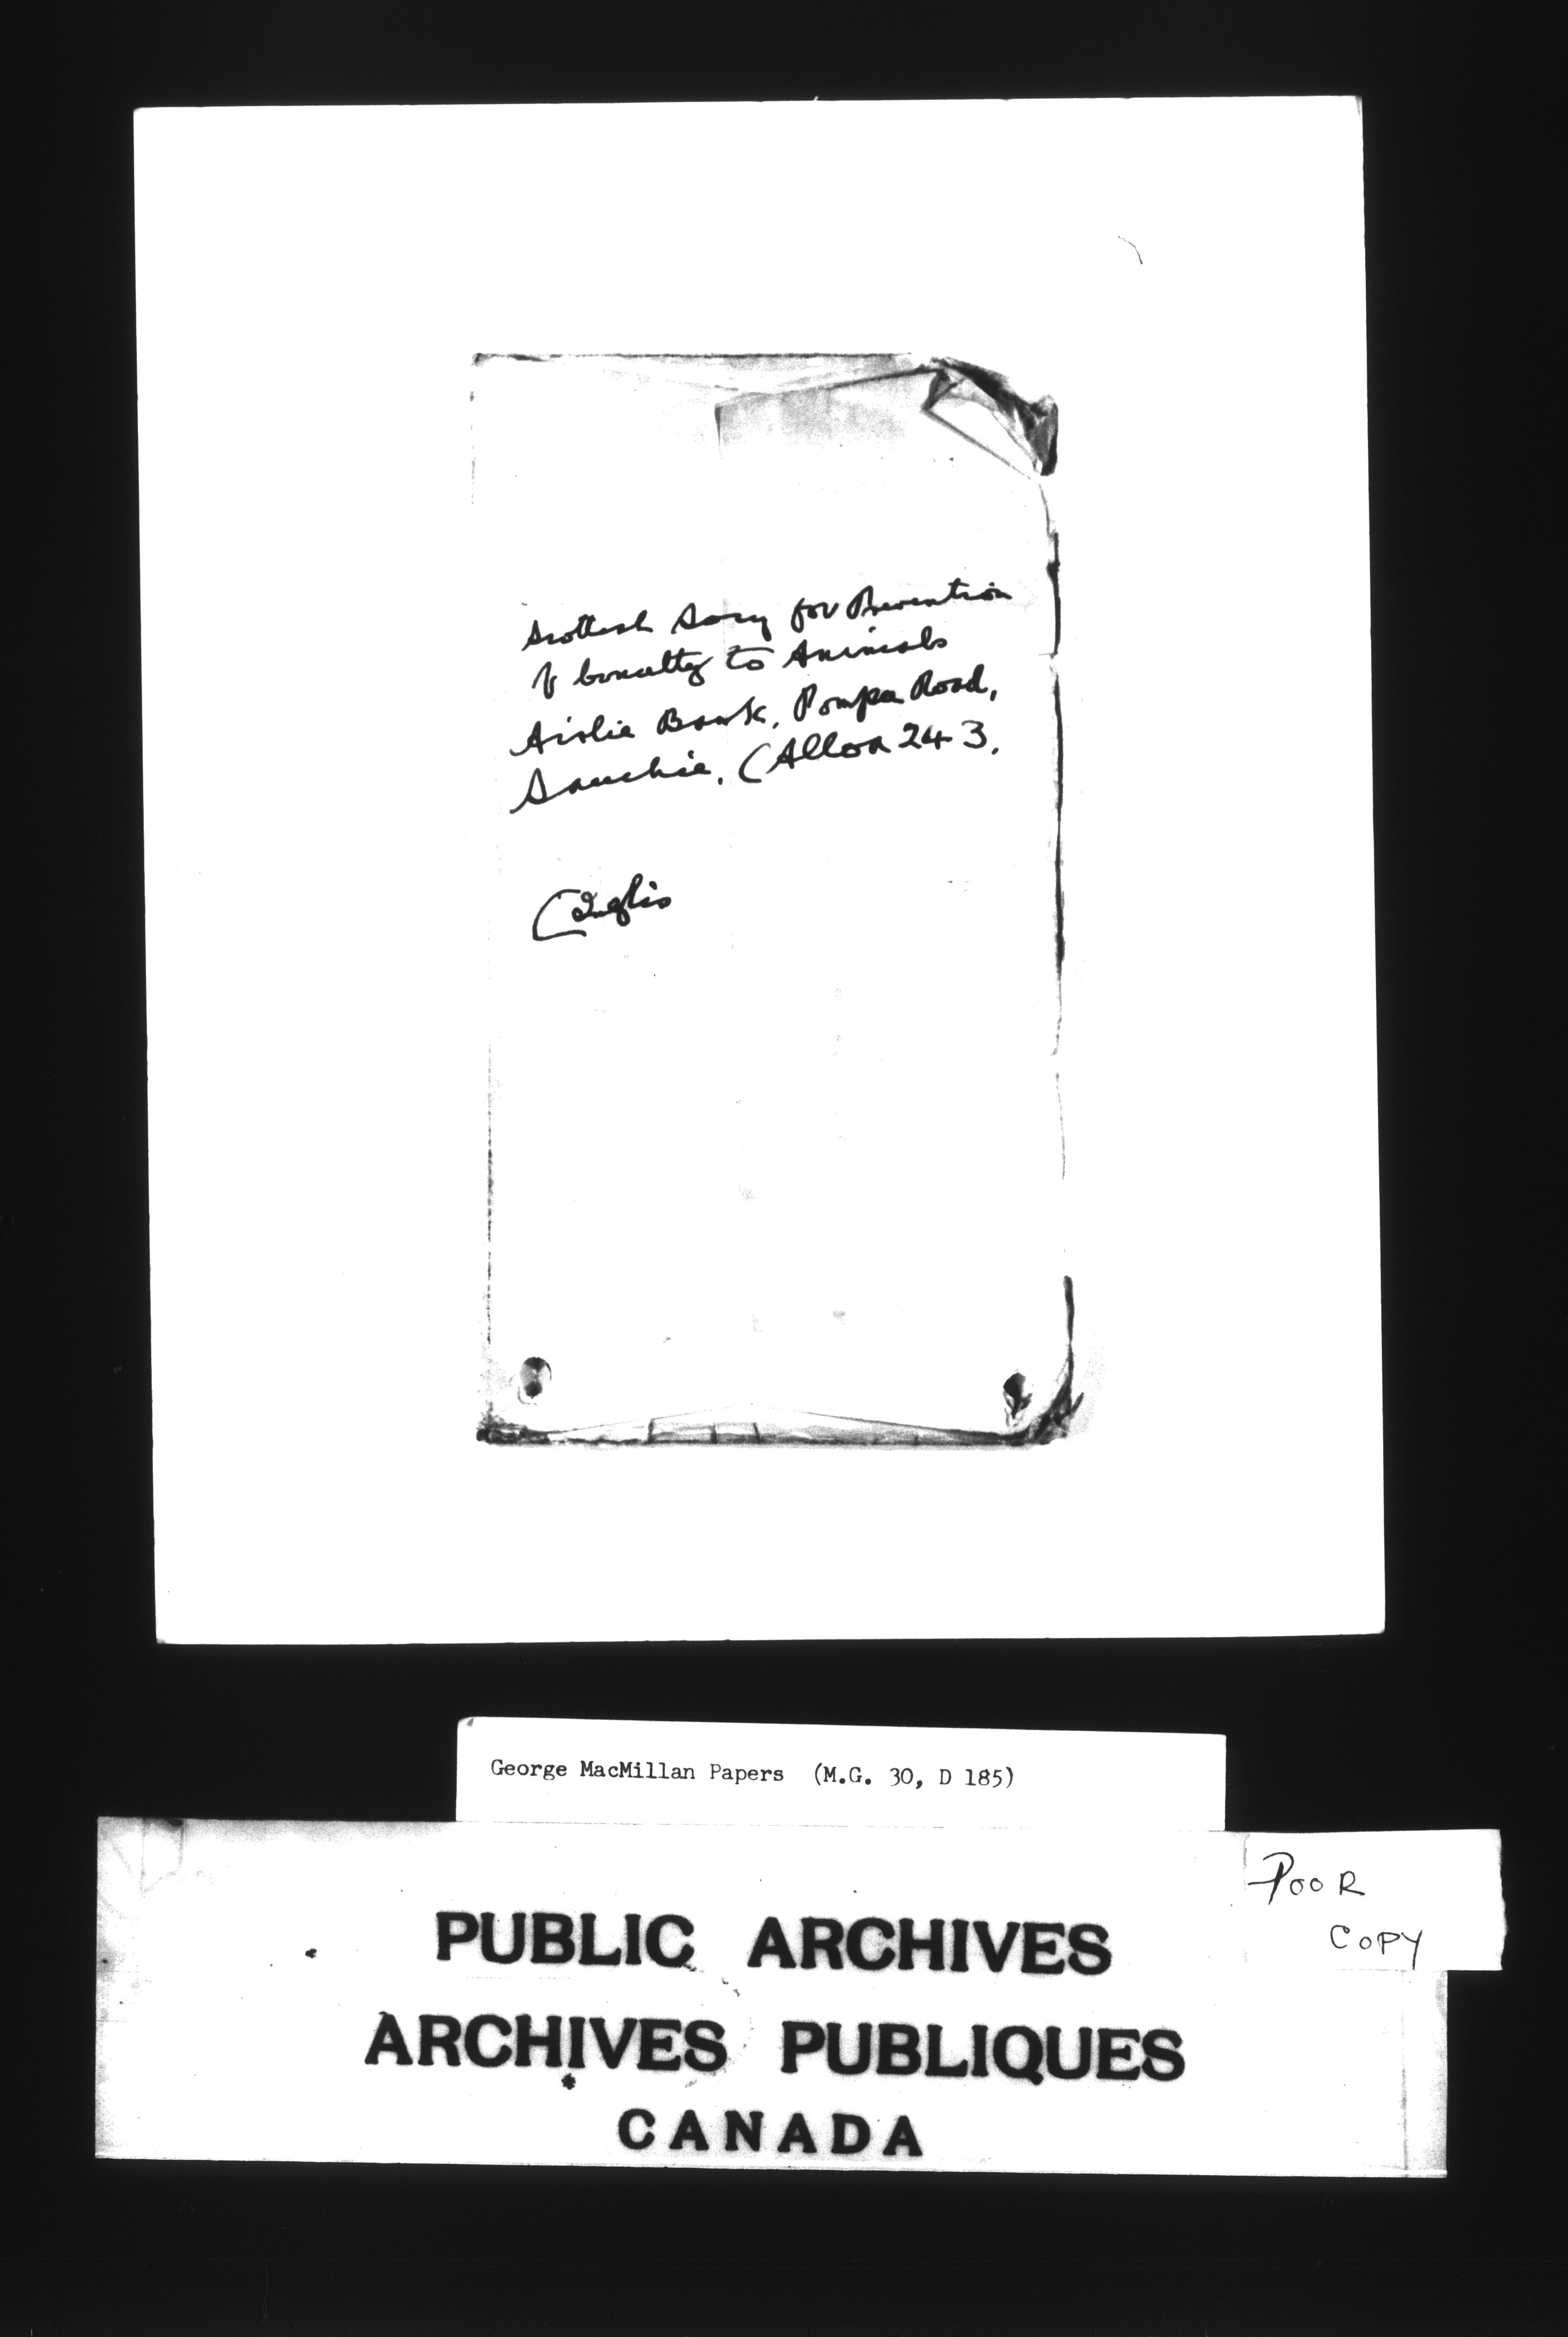 Scottish Socy for Prevention
of Cruelty to Animals
Airlie Bank, Pompee Road,
Sauchie. (Alloa 243.
(Inglis
George MacMillan Papers (M.G. 30, D 185)
POOR
COPY
PUBLIC ARCHIVES
ARCHIVES PUBLIQUES
CANADA